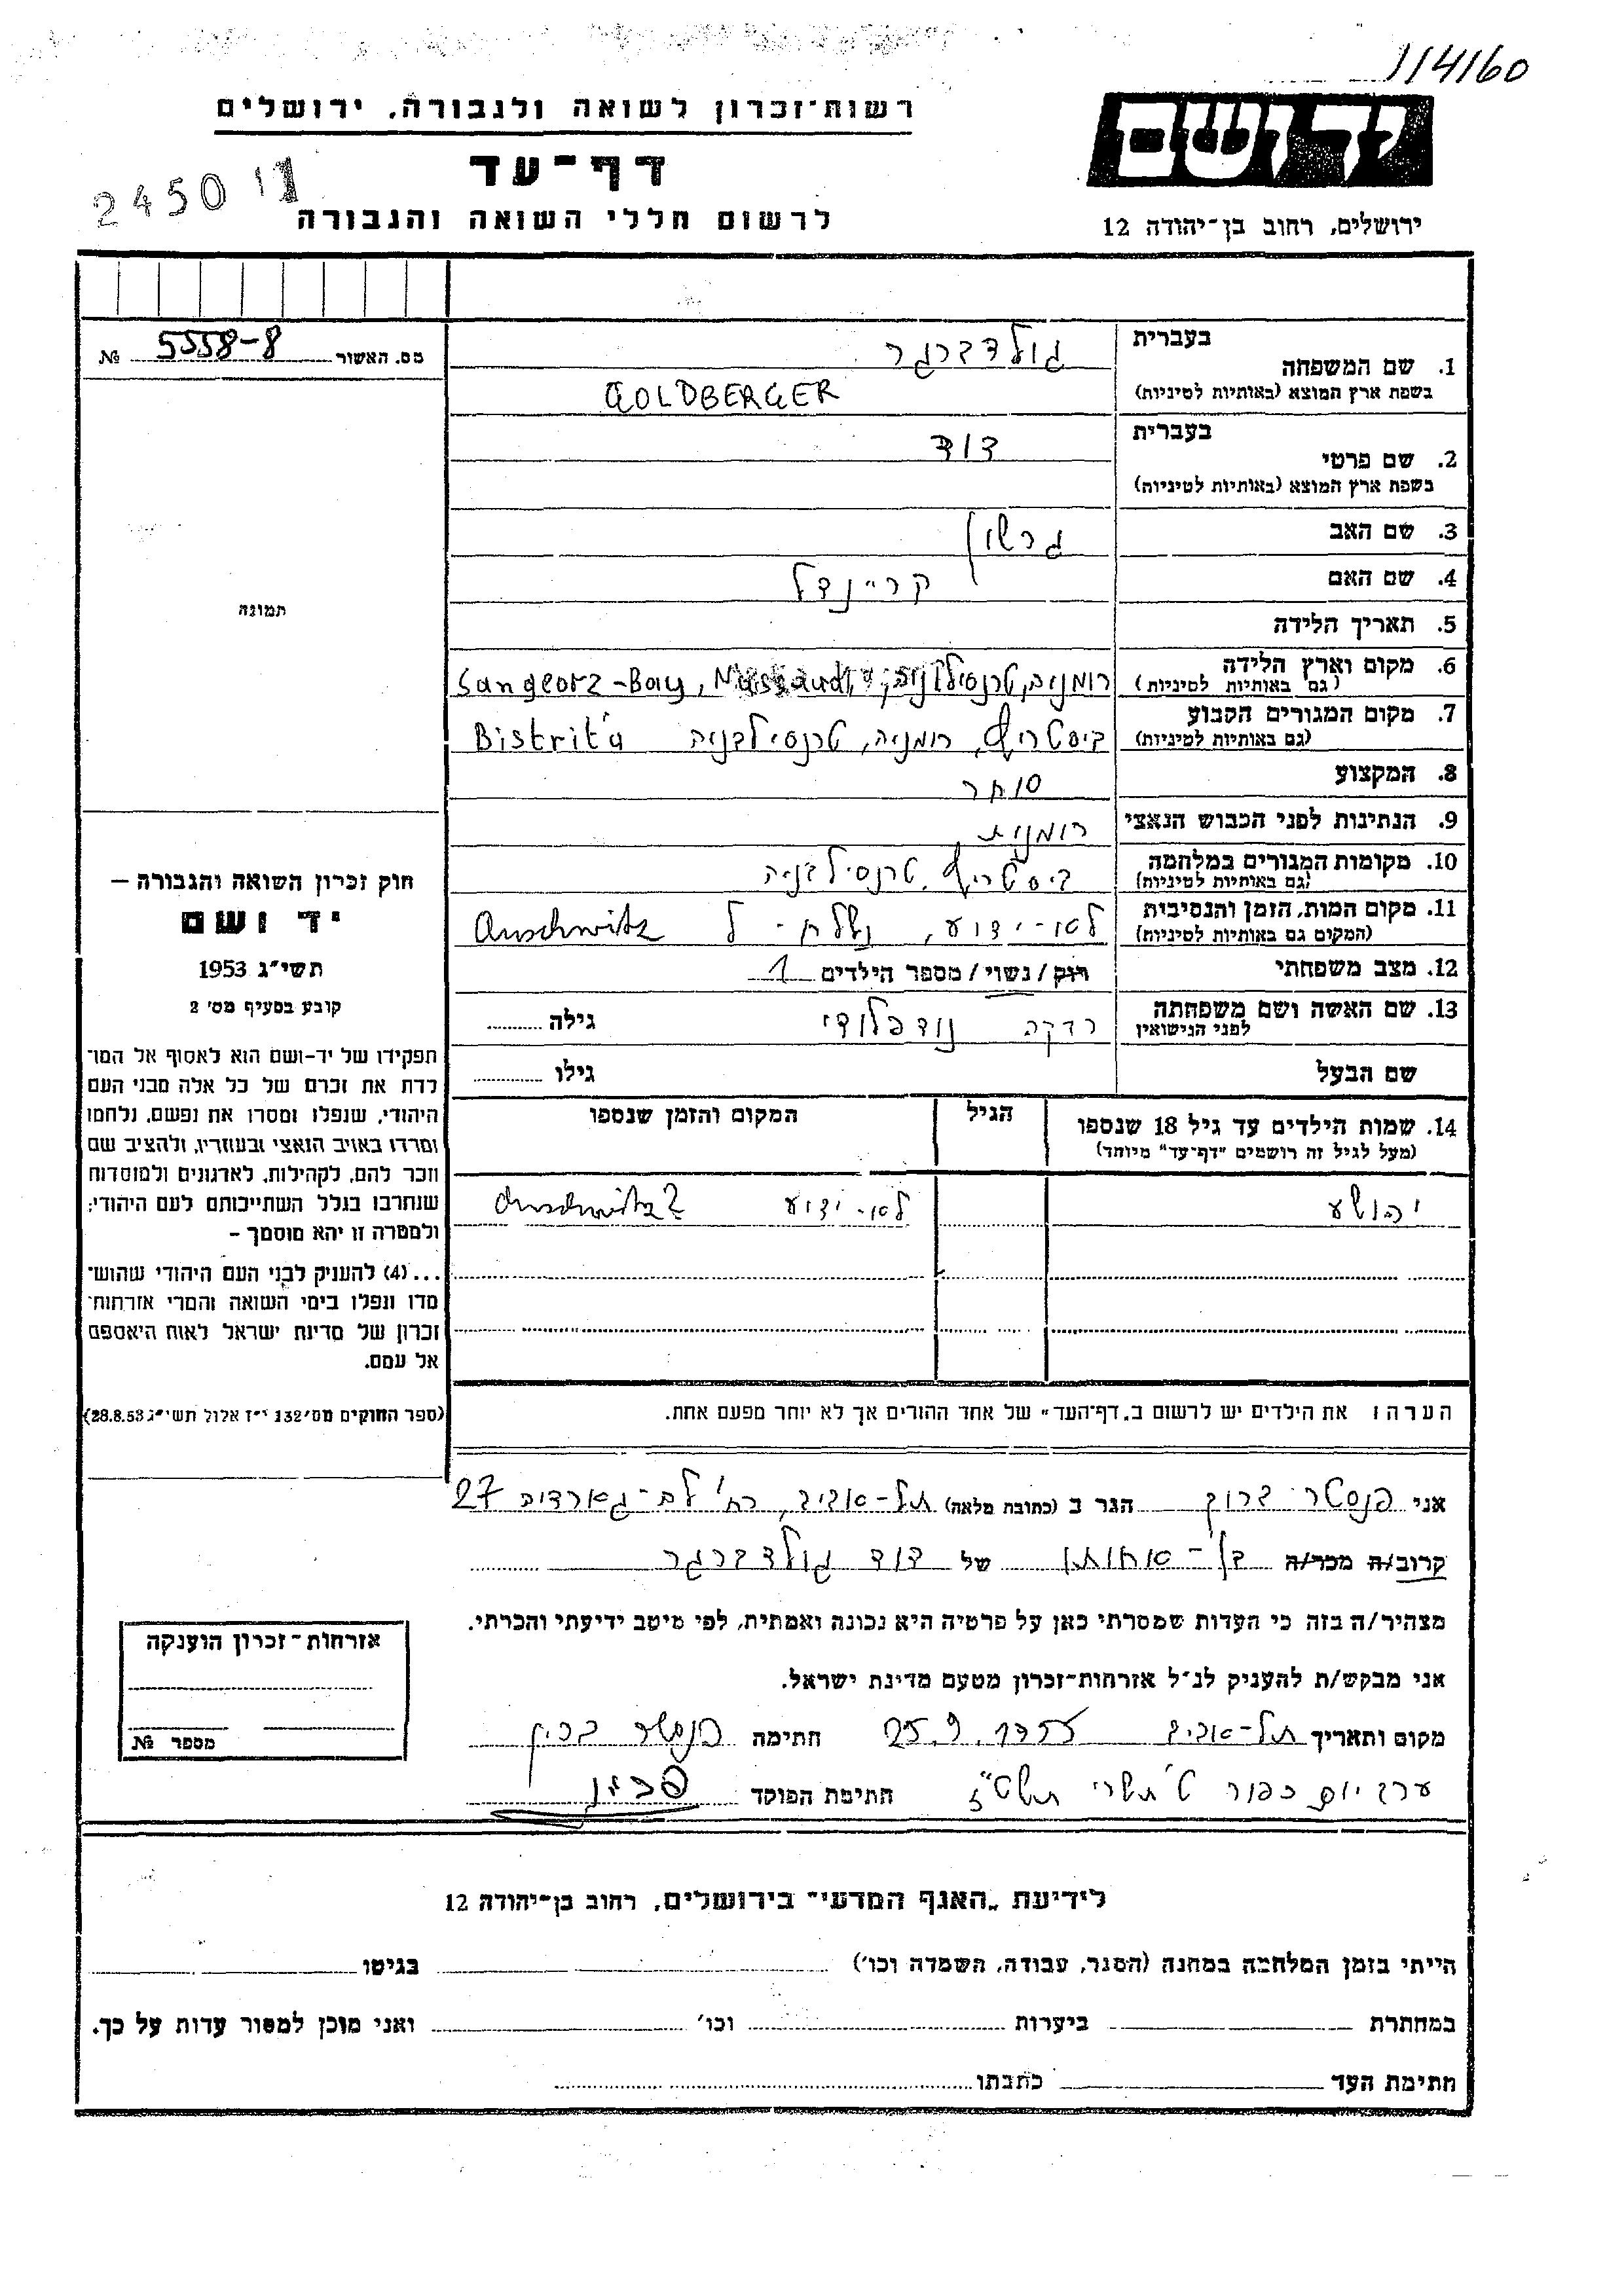 114160
רשות־זכרון לשואה ולגבורה, ירושלים
יד ושם
דף־עד
2450
לרשום חללי השואה והגבורה
ירושלים, רחוב בן־יהודה 12
מס. האשור 5558-8 №
תמונה
חוק זכרון השואה והגבורה —
יד ושם
תשי״ג 1953
קובע בסעיף מס׳ 2
תפקידו של יד-ושם הוא לאסוף אל המו־
לדת את זכרם של כל אלה מבני העם
היהודי, שנפלו ומסרו את נפשם, נלחמו
ומרדו באויב הנאצי ובעוזריו, ולהציב שם
וזכר להם, לקהילות, לארגונים ולמוסדות
שנחרבו בגלל השתייכותם לעם היהודי;
ולמטרה זו יהא מוסמך -
...(4) להעניק לבני העם היהודי שהוש־
מדו ונפלו בימי השואה והמרי אזרחות־
זכרון של מדינת ישראל לאות היאספם
אל עמם.
(ספר החוקים מס׳ 132 י״ז אלול תשי״ג 28.8.53)
בעברית גולדברגר
1. שם המשפחה
בשפת ארץ המוצא (באותיות לטיניות) GOLDBERGER
בעברית דוד
2. שם פרטי
בשפת ארץ המוצא (באותיות לטיניות)
3. שם האב גרשון
4. שם האם קריינדל
5. תאריך הלידה
6. מקום וארץ הלידה רומניה, טרנסילבניה, Sangeorz-Bay,
(גם באותיות לטיניות)
7. מקום המגורים הקבוע ביסטריץ, רומניה, טרנסילבניה Bistrița
(גם באותיות לטיניות)
8. המקצוע סוחר
9. הנתינות לפני הכבוש הנאצי רומנית
10. מקומות המגורים במלחמה ביסטריץ, טרנסילבניה
(גם באותיות לטיניות)
11. מקום המות, הזמן והנסיבות לא-ידוע, נשלח - ל Auschwitz
(המקום גם באותיות לטיניות)
12. מצב משפחתי רוק/נשוי/ מספר הילדים 1
13. שם האשה ושם משפחתה רבקה גילה
לפני הנישואין
שם הבעל גילו
14. שמות הילדים עד גיל 18 שנספו הגיל המקום והזמן שנספו
(מעל לגיל זה רושמים "דף־עד" מיוחד)
יהושע לא-ידוע Auschwitz?
הערה: את הילדים יש לרשום ב„דף־העד״ של אחד ההורים אך לא יותר מפעם אחת.
אני פנסטר ברוך הגר ב (כתובת מלאה) תל-אביב, רח' לה-גארדיה 27
קרוב/ה מכר/ה בן-אחותו של דוד גולדברגר
מצהיר/ה בזה כי העדות שמסרתי כאן על פרטיה היא נכונה ואמתית, לפי מיטב ידיעתי והכרתי.
אני מבקש/ת להעניק לנ״ל אזרחות־זכרון מטעם מדינת ישראל.
מקום ותאריך תל-אביב 25.9. חתימה פנסטר ברוך
ערב יום כפור ט' תשרי חתימת הפוקד
אזרחות־זכרון הוענקה
מספר №
לידיעת „האגף המדעי״ בירושלים, רחוב בן־יהודה 12
הייתי בזמן המלחמה במחנה (הסגר, עבודה, השמדה וכו׳) בגיטו
במחתרת ביערות וכו׳ ואני מוכן למסור עדות על כך.
חתימת העד כתבתו